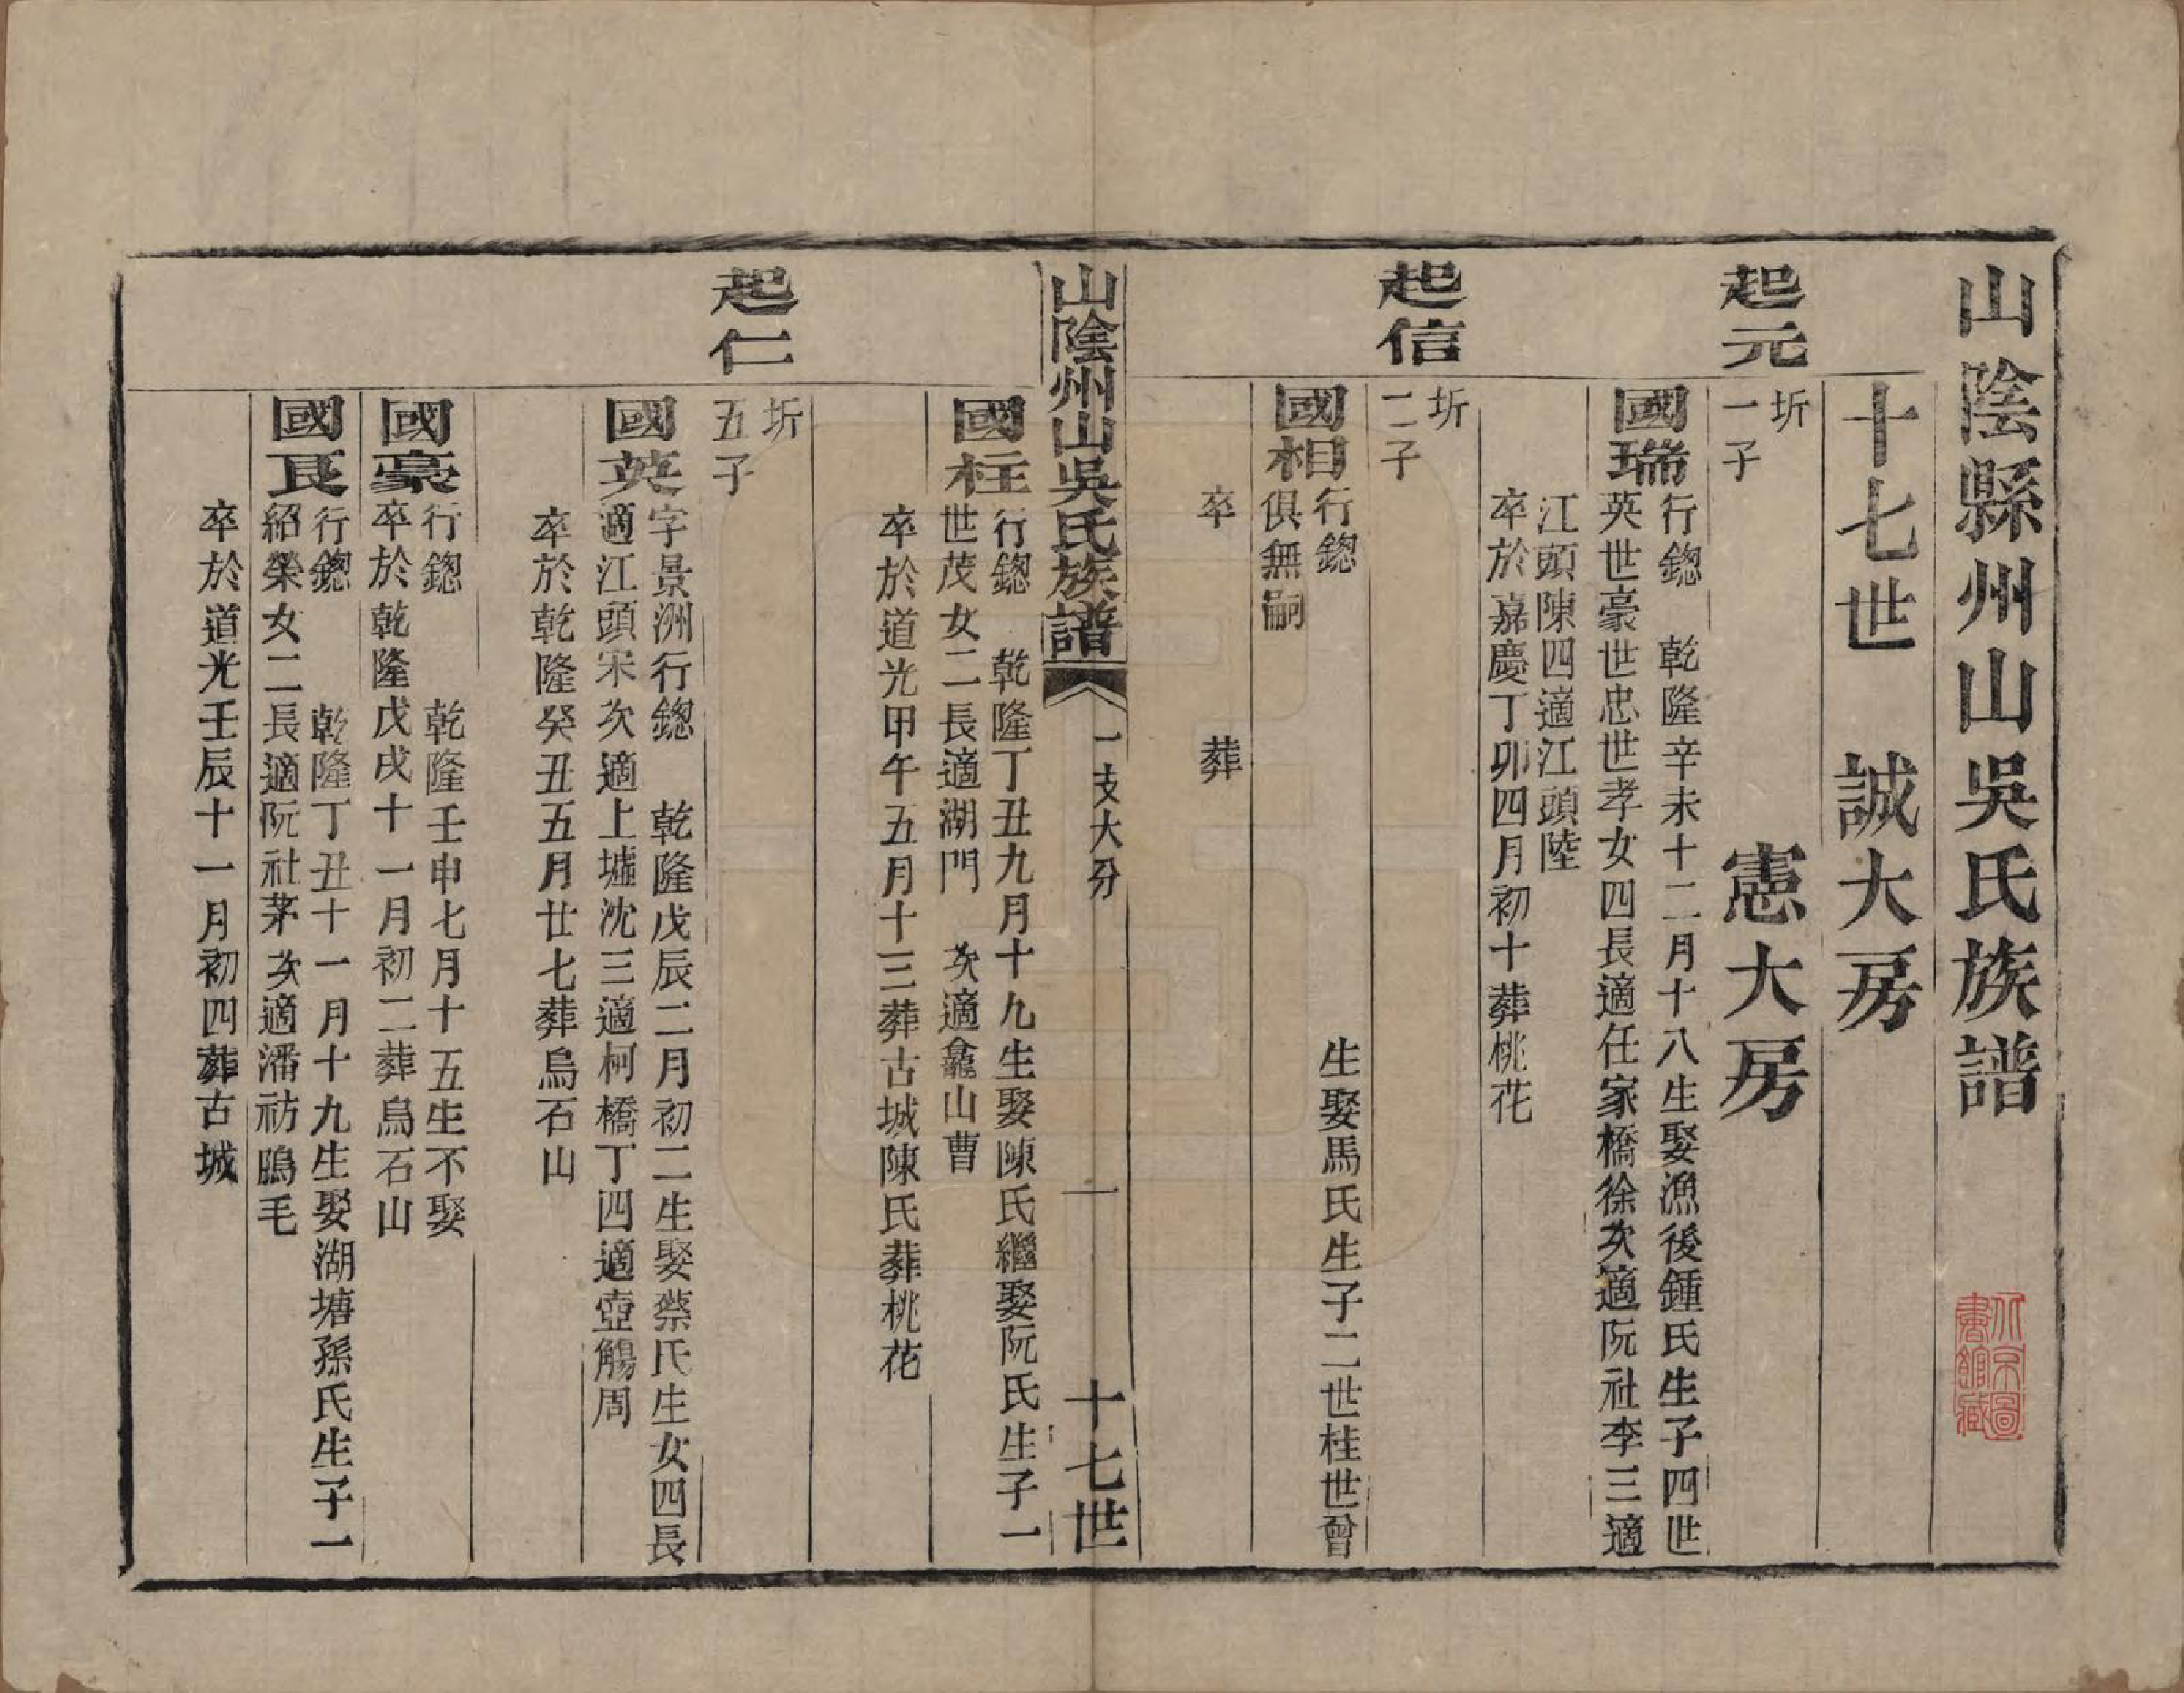 山陰縣州山吳氏族譜
十七世　誠大房
憲大房
起元
圻
一子
國瑞
行鍯　乾隆辛未十二月十八生娶漁後鍾氏生子四世
英世豪世忠世孝女四長適任家橋徐次適阮社李三適
江頭陳四適江頭陸
卒於嘉慶丁卯四月初十葬桃花
起信
圻
二子
國相
行鍯　生娶馬氏生子二世桂世曾
俱無嗣
卒　葬
山陰州山吳氏族譜　一支大分　一　十七世
國柱
行鍯　乾隆丁丑九月十九生娶陳氏繼娶阮氏生子一
世茂女二長適湖門　次適龕山曹
卒於道光甲午五月十三葬古城陳氏葬桃花
起仁
圻
五子
國英
字景洲行鍯　乾隆戊辰二月初二生娶蔡氏生女四長
適江頭宋次適上墟沈三適柯橋丁四適壺觴周
卒於乾隆癸丑五月廿七葬烏石山
國豪
行鍯　乾隆壬申七月十五生不娶
卒於乾隆戊戌十一月初二葬烏石山
國良
行鍯　乾隆丁丑十一月十九生娶湖塘孫氏生子一
紹榮女二長適阮社茅次適潘祊鵰毛
卒於道光壬辰十一月初四葬古城
北京圖書館藏